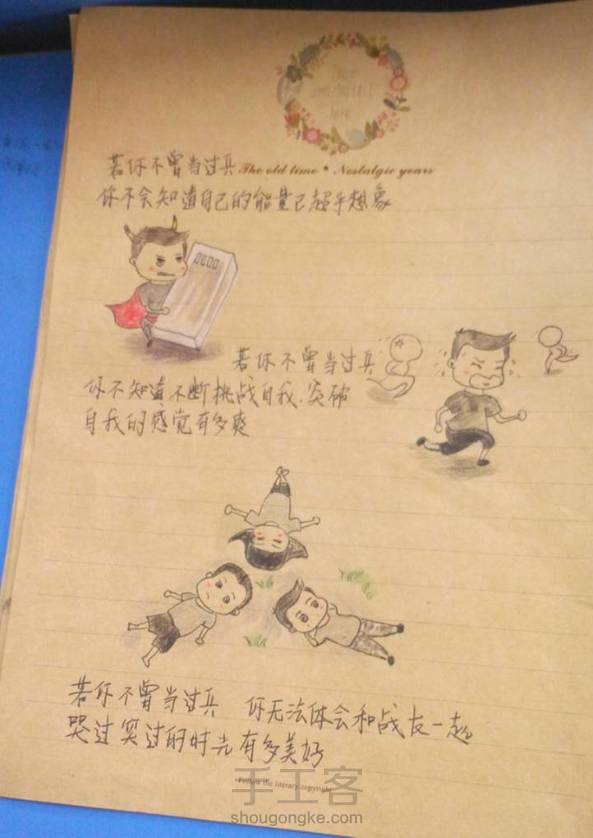 若你不曾当过兵
The old time * Nostalgic years
你不会知道自己的能量已超乎想象
若你不曾当过兵
你不知道不断挑战自我.突破
自我的感觉有多爽
若你不曾当过兵 你无法体会和战友一起
哭过笑过的时光有多美好
Follow the literary copyright
手工客
shougongke.com